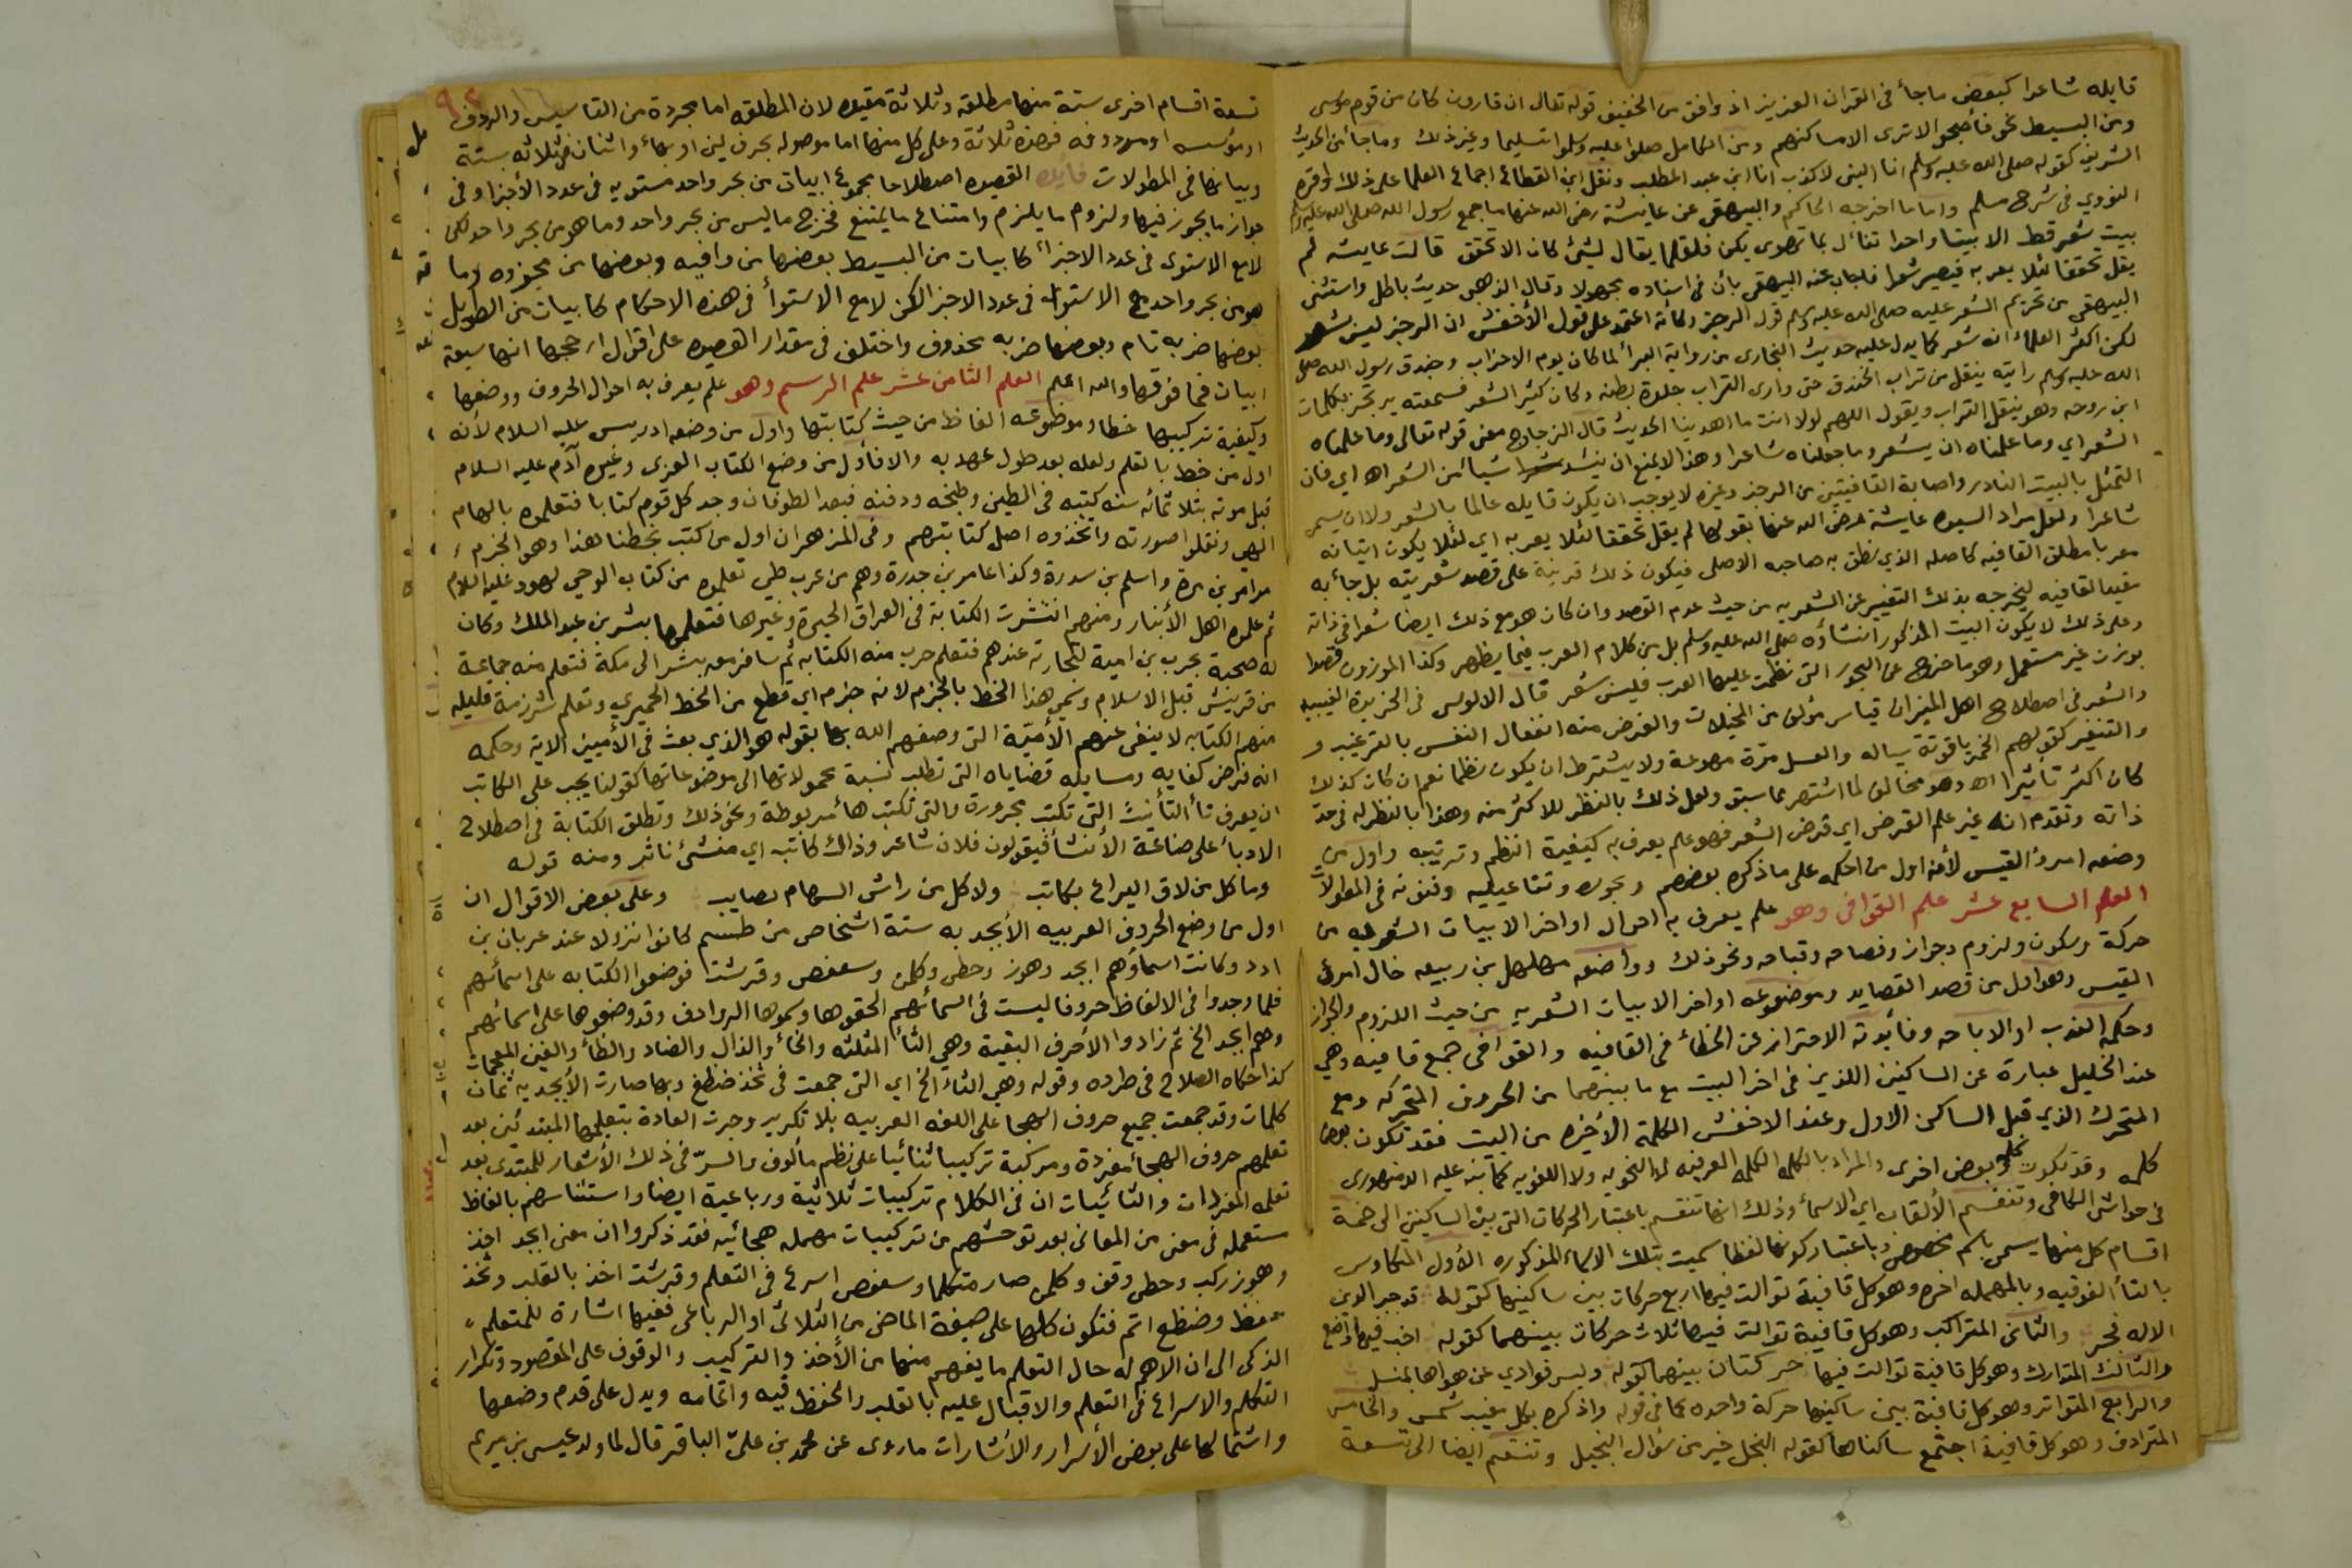 قايله شاعرا كبعض ما جأ فى القران العزيز اذ وافق من الخفيف قوله تعالى ان قارون كان من قوم موسى
ومن البسيط نحو فأصبحوا لا ترى الا مساكنهم ومن الكامل صلوا عليه وسلموا تسليما وغير ذلك وما جأ من الحديث
الشريف كقوله صلى الله عليه وسلم انا النبى لا كذب انا ابن عبد المطلب ونقل ابن القطاع اجماع العلما على ذلك واقره
النووي فى شرح مسلم واما ما اخرجه الحاكم والبيهقى عن عايشة رضى الله عنها ما جمع رسول الله صلى الله عليه وسلم
بيت شعر قط الا بيتا واحدا تفأل بما تهوى يكن فلقلما يقال لشئ كان الا تحقق قالت عايشه لم
يقل تحققا لئلا يعربه فيصير شعرا فاجاب عنه البيهقى بأن فى اسناده مجهولا وقال الذهبى حديث باطل واستثنى
البيهقى من تحريم الشعر عليه صلى الله عليه وسلم قول الرجز وكأنه اعتمد على قول الأخفش ان الرجز ليس بشعر
لكن اكثر العلمأ انه شعر كما يدل عليه حديث البخارى من رواية البرأ لما كان يوم الاحزاب وخندق رسول الله صلى
الله عليه وسلم رايته ينقل من تراب الخندق حتى وارى التراب جلدة بطنه وكان كثير الشعر فسمعته يرتجز بكلمات
ابن روحه وهو ينقل التراب ويقول اللهم لولا انت ما اهدينا الحديث قال الزجاج معنى قوله تعالى وما علمناه
الشعر اي وما علمناه ان يشعر وما جعلناه شاعرا وهذا لا يمنع ان ينشد شيأ من الشعر اه اي فان
التمثل بالبيت النادر واصابة القافيتين من الرجز وغيره لا يوجب ان يكون قايله عالما بالشعر ولا ان يسمى
شاعرا ولعل مراد السيده عايشة رضى الله عنها بقولها لم يقل تحققا لئلا يعربه اي لئلا يكون اتيانه
معربا مطلق القافيه كاصله الذي نطق به صاحبه الاصلى فيكون ذلك قرينة على قصد شعريته بل جأ به
مقيد القافيه ليخرجه بذلك التغيير عن الشعريه من حيث عدم القصد وان كان هو مع ذلك ايضا شعرا فى ذاته
وعلى ذلك لا يكون البيت المذكور انشاؤه صلى الله عليه وسلم بل من كلام العرب فيما يظهر وكذا الموزون قصدا
بوزن غير مستعمل وهو ما خرج عن البحور التى نظمت عليها العرب فليس شعر قال الالوسى فى الخريدة الغيبيه
والشعر فى اصطلاح اهل الميزان قياس مؤلف من المخيلات والغرض منه انفعال النفس بالترغيب و
والتنفير كقولهم الخمر ياقوتة سياله والعسل مرّة مهوعة ولا يشترط ان يكون نظما نعم ان كان كذلك
كان اكثر تأثيرا اه وهو مخالف لما اشتهر مما سبق ولعل ذلك بالنظر للاكثر منه وهذا بالنظر له فى حد
ذاته وتقدم انه غير علم القرض اي قرض الشعر فهو علم يعرف به كيفية النظم وترتيبه واول من
وضعه امرؤ القيس لأنه اول من احكمه على ما ذكره بعضهم وبحوره وتفاعيله وفنونه فى المطولات
العلم السابع عشر علم القوافى وهو علم يعرف به احوال اواخر الابيات الشعريه من
حركة وسكون ولزوم وجواز وفصاحه وقباحه ونحو ذلك وواضعه مهلهل بن ربيعه خال امرئ
القيس وهو اول من قصد القصايد وموضوعه اواخر الابيات الشعريه من حيث اللزوم والجواز
وحكمه الندب او الاباحه وفأيدته الاحتراز عن الخطأ فى القافيه والقوافى جمع قافيه وهي
عند الخليل عبارة عن الساكنين اللذين فى اخر البيت مع ما بينهما من الحروف المتحركه ومع
المتحرك الذي قبل الساكن الاول وعند الاخفش الكلمة الأخيره من البيت فقد تكون بعض
كلمه وقد تكون كلمه وبعض اخرى والمراد بالكلمه الكلمه العرفيه لا النحويه ولا اللغويه كما نبه عليه الدمنهورى
فى حواشى الكافى وتنقسم الألقاب اي الاسمأ وذلك انها تنقسم باعتبار الحركات التى بين الساكنين الى خمسة
اقسام كل منها يسمى باسم مخصوص وباعتبار كونها لفظا سميت بتلك الاسماء المذكوره الأول المتكاوس
بالتأ الفوقيه وبالمهمله اخره وهو كل قافية توالت فيها اربع حركات بين ساكنيها كقوله قد جبر الدين
الاله فجبر والثانى المتراكب وهو كل قافية توالت فيها ثلاث حركات بينهما كقوله اخب فيها واضع
والثالث المتدارك وهو كل قافية توالت فيها حركتان بينهما كقوله وليس فوادي عن هواها بمنسل
والرابع المتواتر وهو كل قافية بين ساكنيها حركة واحده كما فى قوله واذكره بكل مغيب شمس والخامس
المترادف وهو كل قافية اجتمع ساكناها كقوله البخل خير من سؤال البخيل وتنقسم ايضا الى تسعة
تسعة اقسام اخرى ستة منها مطلقه وثلاثة مقيده لان المطلقه اما مجردة من التاسيس والردف
او مؤسسه او مردوفه فهذه ثلاثة وعلى كل منها اما موصوله بحرف لين او بهاء واثنان فى ثلاثه بستة
وبيانها فى المطولات فايدة القصيده اصطلاحا مجموع ابيات من بحر واحد مستويه فى عدد الأجزا وفى
جواز ما يجوز فيها ولزوم ما يلزم وامتناع ما يمتنع فخرج ما ليس من بحر واحد وما هو من بحر واحد لكن
لا مع الاستوى فى عدد الاجزأ كابيات من البسيط بعضها من وافيه وبعضها من مجزوه وما
هو من بحر واحد مع الاستوا فى عدد الاجزا لكن لا مع الاستوأ فى هذه الاحكام كابيات من الطويل
بعضها ضربه تام وبعضها ضربه محذوف واختلف فى مقدار القصيده على اقوال ارجحها انها سبعة
ابيات فما فوقها والله اعلم العلم الثامن عشر علم الرسم وهو علم يعرف به احوال الحروف ووضعها
وكيفية تركيبها خطا وموضوعه الفاظ من حيث كتابتها واول من وضعه ادريس عليه السلام لأنه
اول من خط بالقلم ولعله بعد طول عهد به والا فأول من وضع الكتاب العربى وغيره آدم عليه السلام
قبل موته بثلاثمائه سنه كتبه فى الطين وطبخه ودفنه فبعد الطوفان وجد كل قوم كتابا فتعلموه بالهام
الهى ونقلوا صورته واتخذوه اصل كتابتهم وفى المزهر ان اول من كتب بخطنا هذا وهو الجزم
مرامر بن مرة واسلم بن سدرة وكذا عامر بن جدرة وهم من عرب طى تعلموه من كتاب الوحى لهود عليه السلام
ثم علموه اهل الأنبار ومنهم انتشرت الكتابة فى العراق الحيرة وغيرها فتعلمها بشر بن عبد الملك وكان
له صحبة بحرب بن امية لتجارته عندهم فتعلم حرب منه الكتابه ثم سافر معه بشر الى مكة فتعلم منه جماعة
من قريش قبل الاسلام وسمى هذا الخط بالجزم لانه جزم اي قطع من الخط الحميري وتعلم شرزمة قليله
منهم الكتابه لا ينفى عنهم الأميّة التى وصفهم الله بها بقوله هو الذي بعث فى الأميين الايه وحكمه
انه فرض كفايه ومسايله قضاياه التى تطلب نسبة محمولاتها الى موضوعاتها كقولنا يجب على الكاتب
ان يعرف تأ التأنيث التى تكتب مجرورة والتى تكتب هأ مربوطة ونحو ذلك وتطلق الكتابة فى اصطلاح
الادبأ على صناعة الأنشأ فيقولون فلان شاعر وذاك كاتب اي منشئ ناثر ومنه قوله
وما كل من لاق اليراع بكاتب ولا كل من راش السهام بصايب وعلى بعض الاقوال ان
اول من وضع الحروف العربيه الأبجديه ستة اشخاص من طسم كانوا نزولا عند عربان بن
ادد وكانت اسماؤهم ابجد وهوز وحطى وكلمن وسعفص وقرشت فوضعوا الكتابه على اسمائهم
فلما وجدوا فى الالفاظ حروفا ليست فى اسمائهم الحقوها وسموها الروادف وقد وضعوها على اسمائهم
وهم ابجد الخ ثم زادوا الأحرف البقية وهي الثأ المثلثه والخأ والذال والضاد والظأ والغين المعجمات
كذا حكاه الصلاح فى طرده وقوله وهي الثاء الخ اي التى جمعت فى ثخذ ضظغ وبها صارت الأبجديه ثمان
كلمات وقد جمعت جميع حروف الهجا على اللغه العربيه بلا تكرير وجرت العادة بتعليمها المبتدئين بعد
تعلمهم حروف الهجأ مفردة ومركبة تركيبا ثنائيا على نظم مألوف والسرّ فى ذلك الأشعار للمبتدى بعد
تعلمه المفردات والثنائيات ان فى الكلام تركيبات ثلاثية ورباعية ايضا واستئناسهم بالفاظ
مستعمله فى معنى من المعانى بعد توحشهم من تركيبات مهمله هجائيه فقد ذكروا ان معنى ابجد اخذ
وهوز ركب وحطى وقف وكلمن صار متكلما وسعفص اسرع فى التعلم وقرشت اخذ بالقلب وثخذ
حفظ وضظغ اتم فتكون كلها على صيغة الماضى من الثلاثى او الرباعى ففيها اشارة للمتعلم
الذكى الى ان الاهم له حال التعلم ما يفهم منها من الأخذ والتركيب والوقوف على المقصود وتكرار
التكلم والاسراع فى التعلم والاقبال عليه بالقلب والحفظ فيه واتمامه ويدل على قدم وضعها
واشتمالها على بعض الأسرار والأشارات ما روى عن محمد بن علىّ الباقر قال لما ولد عيسى بن مريم